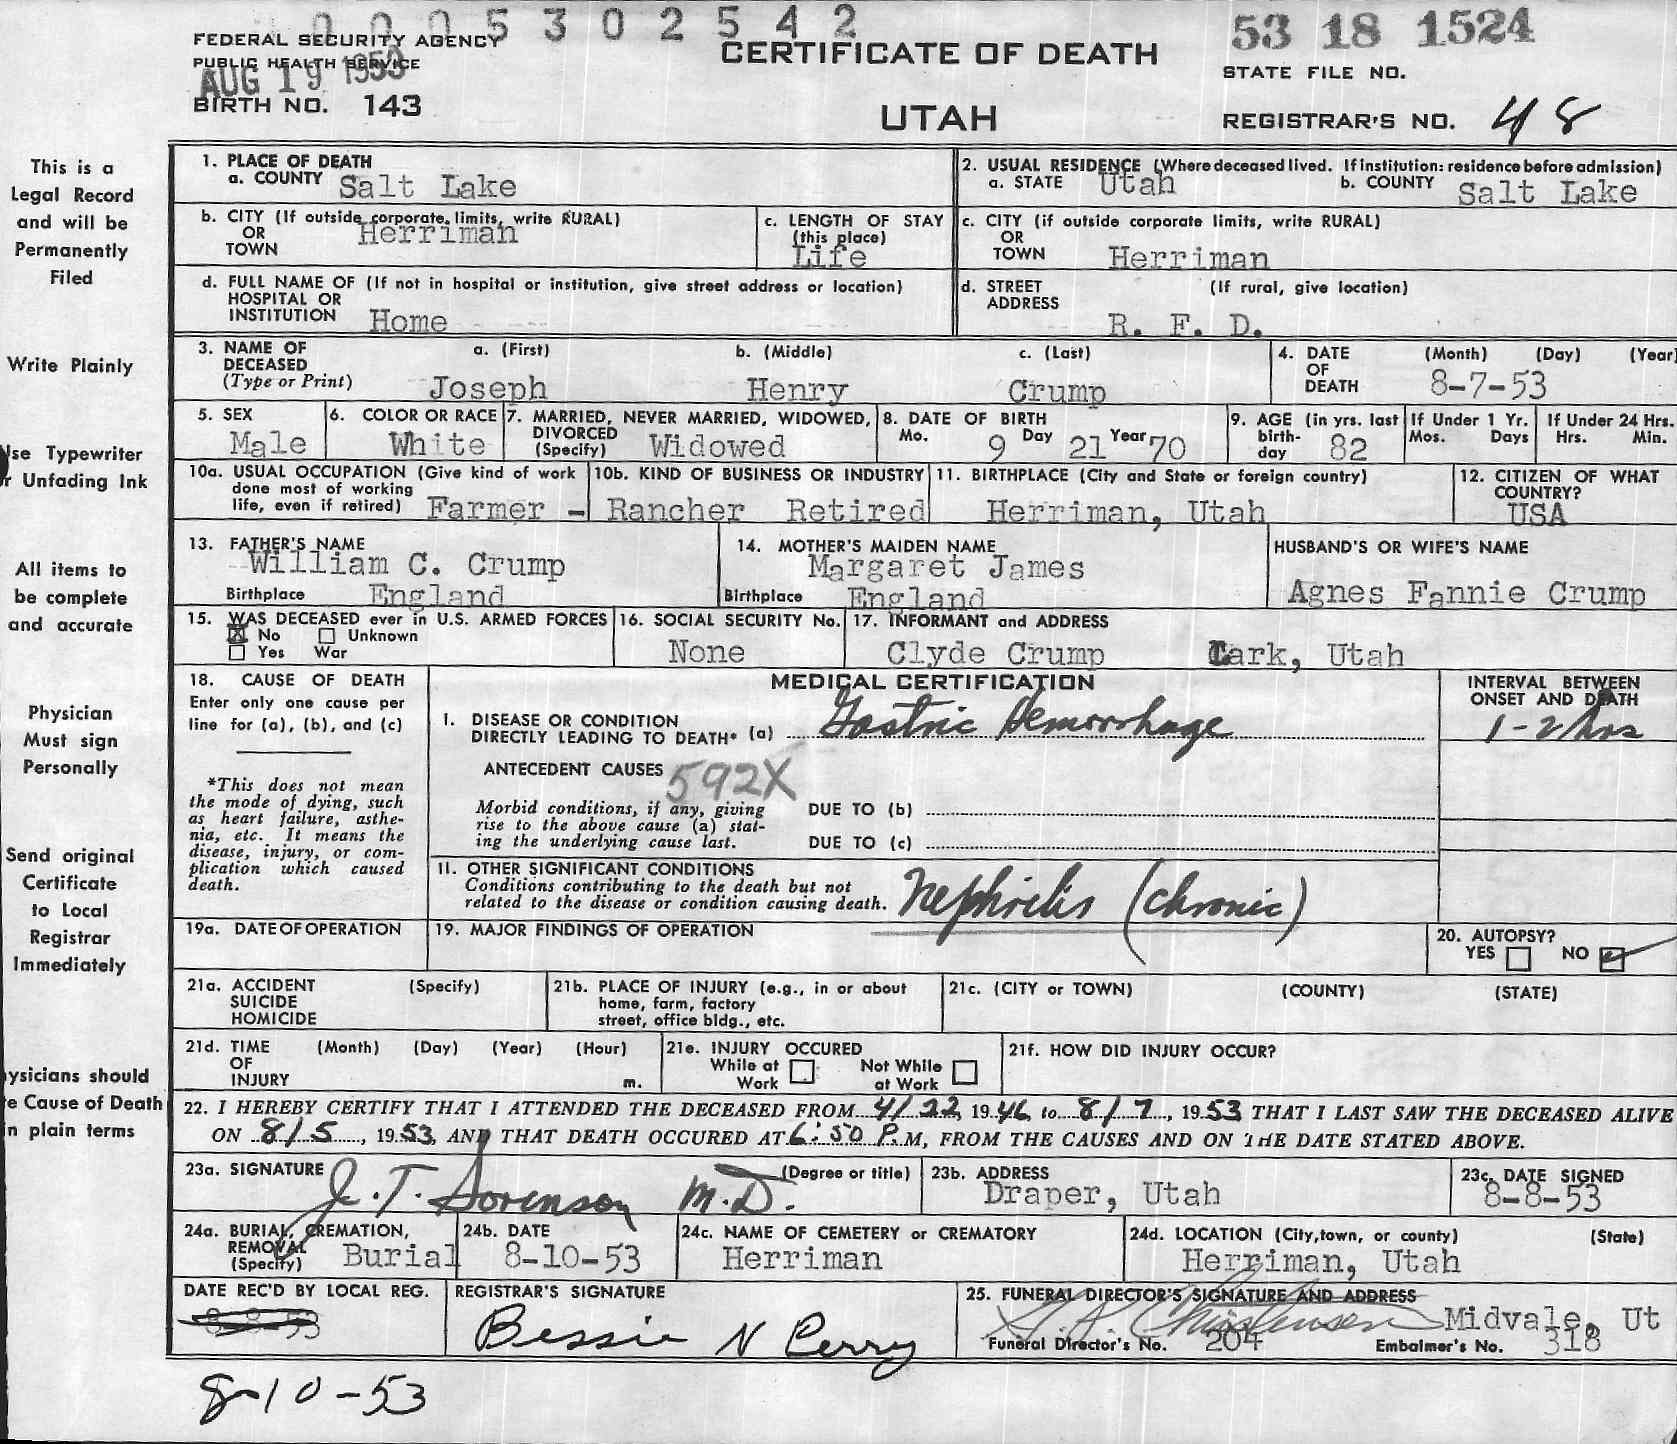 0005302542
53 18 1524
FEDERAL SECURITY AGENCY
PUBLIC HEALTH SERVICE
AUG 19 1953
BIRTH NO. 143
CERTIFICATE OF DEATH
UTAH
STATE FILE NO.
REGISTRAR'S NO. 48
This is a
Legal Record
and will be
Permanently
Filed
Write Plainly
Use Typewriter
r Unfading Ink
All items to
be complete
and accurate
Physician
Must sign
Personally
Send original
Certificate
to Local
Registrar
Immediately
ysicians should
e Cause of Death
n plain terms
1. PLACE OF DEATH
a. COUNTY Salt Lake
2. USUAL RESIDENCE (Where deceased lived. If institution: residence before admission)
a. STATE Utah b. COUNTY Salt Lake
b. CITY (If outside corporate limits, write RURAL)
OR
TOWN Herriman
c. LENGTH OF STAY
(this place)
Life
c. CITY (if outside corporate limits, write RURAL)
OR
TOWN Herriman
d. FULL NAME OF (If not in hospital or institution, give street address or location)
HOSPITAL OR
INSTITUTION Home
d. STREET (If rural, give location)
ADDRESS
R. F. D.
3. NAME OF a. (First) b. (Middle) c. (Last)
DECEASED
(Type or Print) Joseph Henry Crump
4. DATE (Month) (Day) (Year)
OF
DEATH 8-7-53
5. SEX
Male
6. COLOR OR RACE
White
7. MARRIED, NEVER MARRIED, WIDOWED,
DIVORCED
(Specify) Widowed
8. DATE OF BIRTH
Mo. 9 Day 21 Year 70
9. AGE (in yrs. last
birth-
day 82
If Under 1 Yr.
Mos. Days
If Under 24 Hrs.
Hrs. Min.
10a. USUAL OCCUPATION (Give kind of work
done most of working
life, even if retired) Farmer -
10b. KIND OF BUSINESS OR INDUSTRY
Rancher Retired
11. BIRTHPLACE (City and State or foreign country)
Herriman, Utah
12. CITIZEN OF WHAT
COUNTRY?
USA
13. FATHER'S NAME
William C. Crump
Birthplace England
14. MOTHER'S MAIDEN NAME
Margaret James
Birthplace England
HUSBAND'S OR WIFE'S NAME
Agnes Fannie Crump
15. WAS DECEASED ever in U.S. ARMED FORCES
☒ No ☐ Unknown
☐ Yes War
16. SOCIAL SECURITY No.
None
17. INFORMANT and ADDRESS
Clyde Crump Lark, Utah
18. CAUSE OF DEATH
Enter only one cause per
line for (a), (b), and (c)
*This does not mean
the mode of dying, such
as heart failure, asthe-
nia, etc. It means the
disease, injury, or com-
plication which caused
death.
MEDICAL CERTIFICATION
I. DISEASE OR CONDITION
DIRECTLY LEADING TO DEATH* (a) Gastric Hemorrhage
INTERVAL BETWEEN
ONSET AND DEATH
1-2 hrs
ANTECEDENT CAUSES 592X
Morbid conditions, if any, giving
rise to the above cause (a) stat-
ing the underlying cause last.
DUE TO (b)
DUE TO (c)
11. OTHER SIGNIFICANT CONDITIONS
Conditions contributing to the death but not
related to the disease or condition causing death.
Nephritis (chronic)
19a. DATE OF OPERATION
19. MAJOR FINDINGS OF OPERATION
20. AUTOPSY?
YES ☐ NO ☑
21a. ACCIDENT (Specify)
SUICIDE
HOMICIDE
21b. PLACE OF INJURY (e.g., in or about
home, farm, factory
street, office bldg., etc.
21c. (CITY or TOWN) (COUNTY) (STATE)
21d. TIME (Month) (Day) (Year) (Hour)
OF
INJURY m.
21e. INJURY OCCURED
While at Work ☐ Not While at Work ☐
21f. HOW DID INJURY OCCUR?
22. I HEREBY CERTIFY THAT I ATTENDED THE DECEASED FROM 4/22, 1946 to 8/7, 1953 THAT I LAST SAW THE DECEASED ALIVE
ON 8/5, 1953, AND THAT DEATH OCCURED AT 6:50 P.M, FROM THE CAUSES AND ON THE DATE STATED ABOVE.
23a. SIGNATURE (Degree or title)
J. T. Sorenson M.D.
23b. ADDRESS
Draper, Utah
23c. DATE SIGNED
8-8-53
24a. BURIAL, CREMATION,
REMOVAL
(Specify) Burial
24b. DATE
8-10-53
24c. NAME OF CEMETERY or CREMATORY
Herriman
24d. LOCATION (City, town, or county) (State)
Herriman, Utah
DATE REC'D BY LOCAL REG.
8-8-53
REGISTRAR'S SIGNATURE
Bessie N Perry
25. FUNERAL DIRECTOR'S SIGNATURE AND ADDRESS
Christensen Midvale, Ut
Funeral Director's No. 204 Embalmer's No. 318
8-10-53